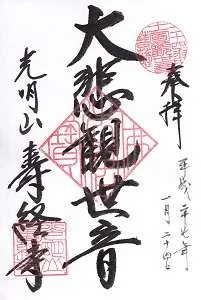 奉拝
平成二十七年
一月二十四日
大悲観世音
光明山
寿経寺